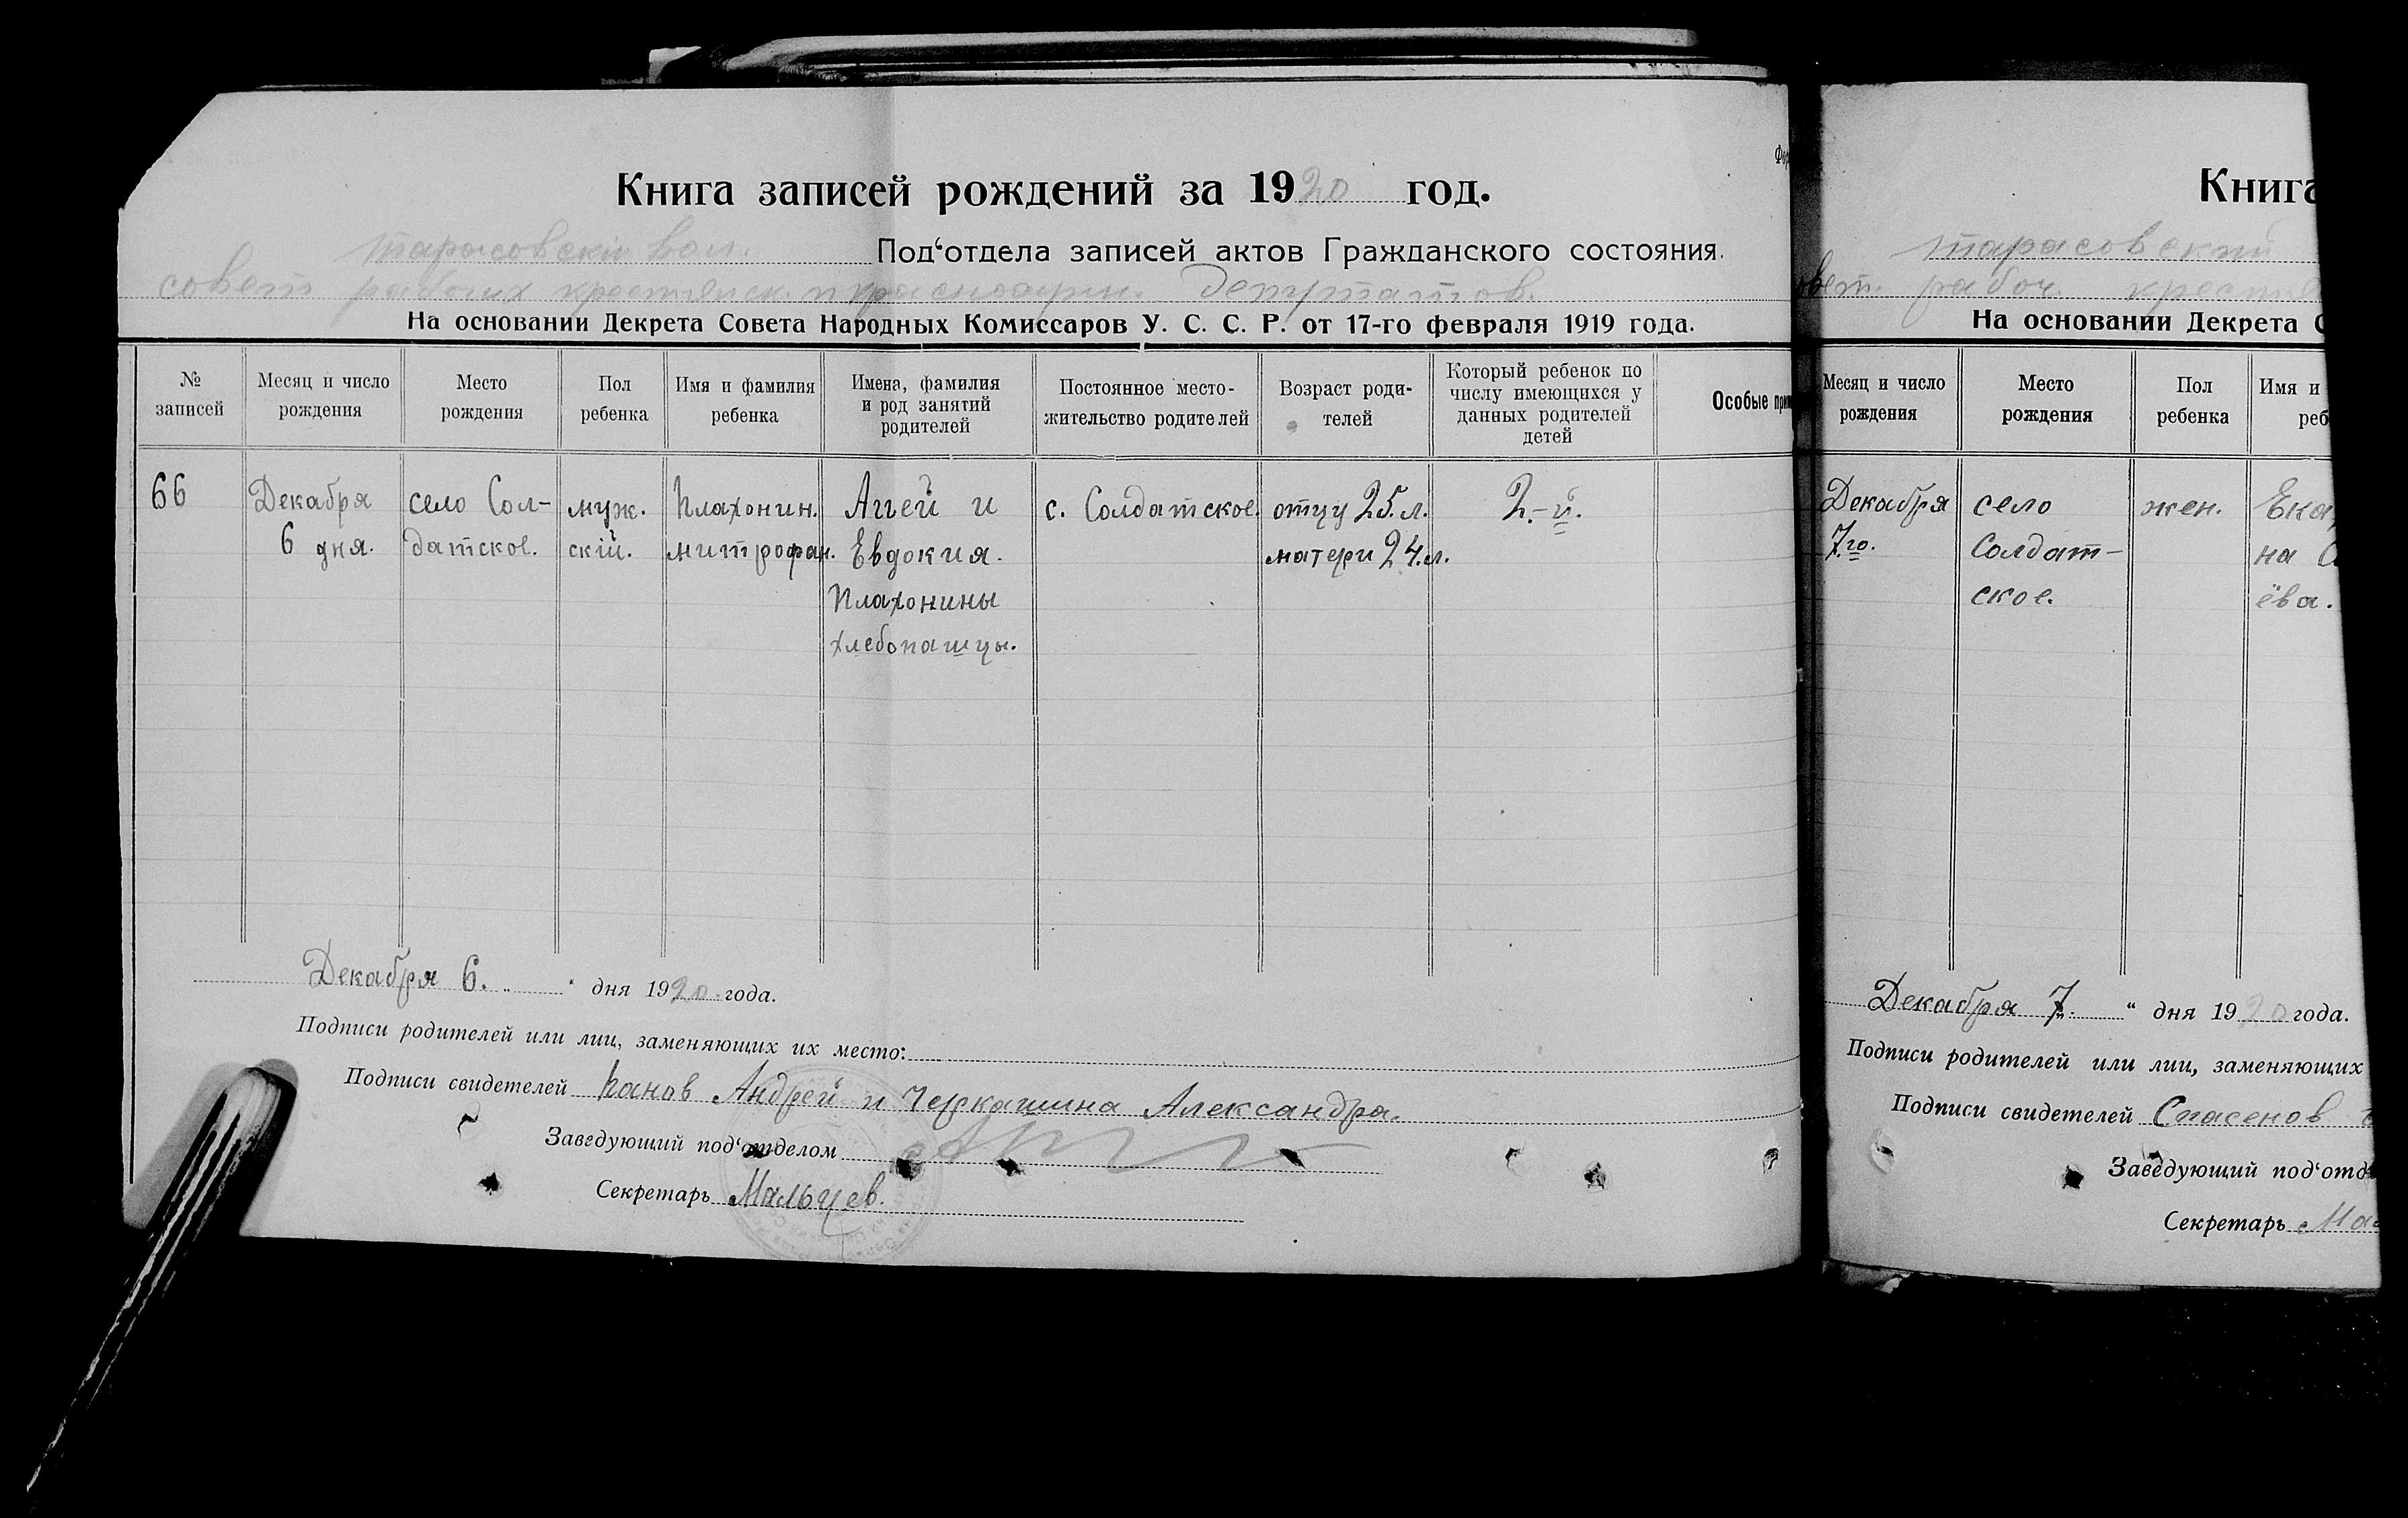 Книга записей рождений за 1920 год.
Тарасовскій вол. Под‘отдела записей актов Гражданского состояния.
совет рабочих крестянск. и красноарм. депутатов.
На основании Декрета Совета Народных Комиссаров У. С. С. Р. от 17-го февраля 1919 года.
№ записей
Месяц и число
рождения
Место
рождения
Пол
ребенка
Имя и фамилия
ребенка
Имена, фамилия
и род занятий
родителей
Постоянное место-
жительство родителей
Возраст роди-
телей
Который ребенок по
числу имеющихся у
данных родителей
детей
Особые
66
Декабря
6 дня.
село Сол-
датское.
муж.
скій.
Плахонин.
митрофан.
Аггей и
Евдокия.
Плахонины
хлебопашцы.
с. Солдатское.
отцу 25.л.
матери 24.л.
2.-й.
Декабря 6. „ “ дня 1920 года.
Подписи родителей или лиц, заменяющих их место:
Подписи свидетелей Панов Андрей и Черкашина Александра.
Заведующий под‘отделом
Секретарь Мальцев.
Книга
Тарасовский
рабоч. крестья
На основании Декрета С
Месяц и число
рождения
Место
рождения
Пол
ребенка
Имя и
реб
Декабря
7го.
село
Солдат-
ское.
жен.
Ека
на
ёва.
Декабря 7. “ дня 1920 года.
Подписи родителей или лиц, заменяющих
Подписи свидетелей Спасенов
Заведующий под‘отд
Секретарь Ма